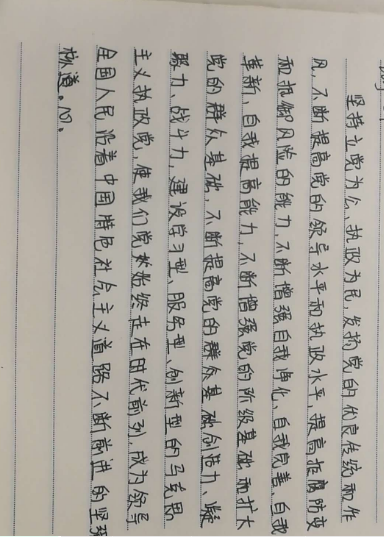 坚持立党为公、执政为民,发扬党的优良传统和作
风,不断提高党的领导水平和执政水平、提高拒腐防变
和抵御风险的能力,不断增强自我净化、自我完善、自我
革新、自我提高能力,不断增强党的阶级基础和扩大
党的群众基础,不断提高党的群众基础创造力、凝
聚力、战斗力,建设学习型、服务型、创新型的马克思
主义执政党,使我们党始终走在时代前列,成为领导
全国人民沿着中国特色社会主义道路不断前进的坚强
核心。